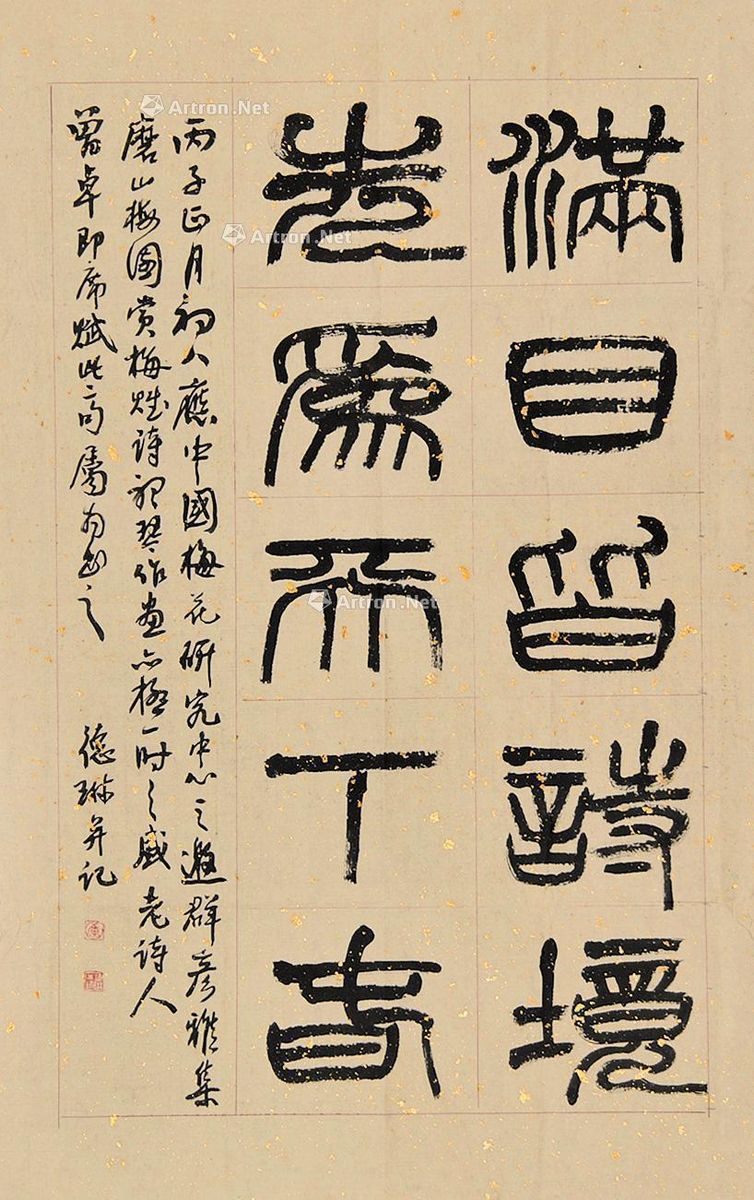 滿目皆詩境
先爲天下春
丙子正月初八應中國梅花研究中心之邀群彥雅集
磨山梅園賞梅賦詩琴作畫亦極一時之盛老詩人
曾卓即席賦此句屬書之
德琳并記
Artron.Net
Artron.Net
Artron.Net